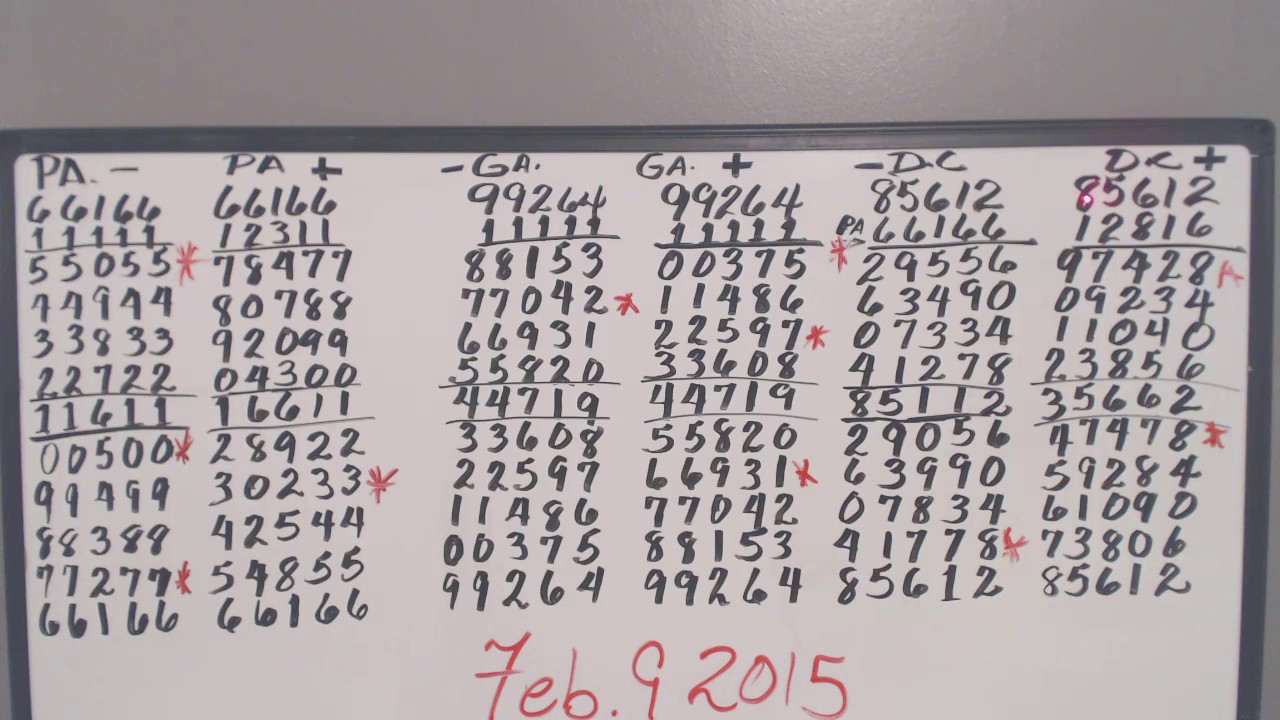 PA. - PA + - GA. GA. + - D.C D.C +
66166 66166 99264 99264 85612 85612
11111 12311 11111 11111 PA 66166 12816
55055 * 78477 88153 00375 * 29556 97428 *
44944 80788 77042 * 11486 63490 09234
33833 92099 66931 22597 * 07334 11040
22722 04300 55820 33608 41278 23856
11611 16611 44719 44719 85112 35662
00500 * 28922 33608 55820 29056 47478 *
99499 30233 * 22597 66931 * 63990 59284
88388 42544 11486 77042 07834 61090
77277 * 54855 00375 88153 41778 * 73806
66166 66166 99264 99264 85612 85612
Feb. 9 2015